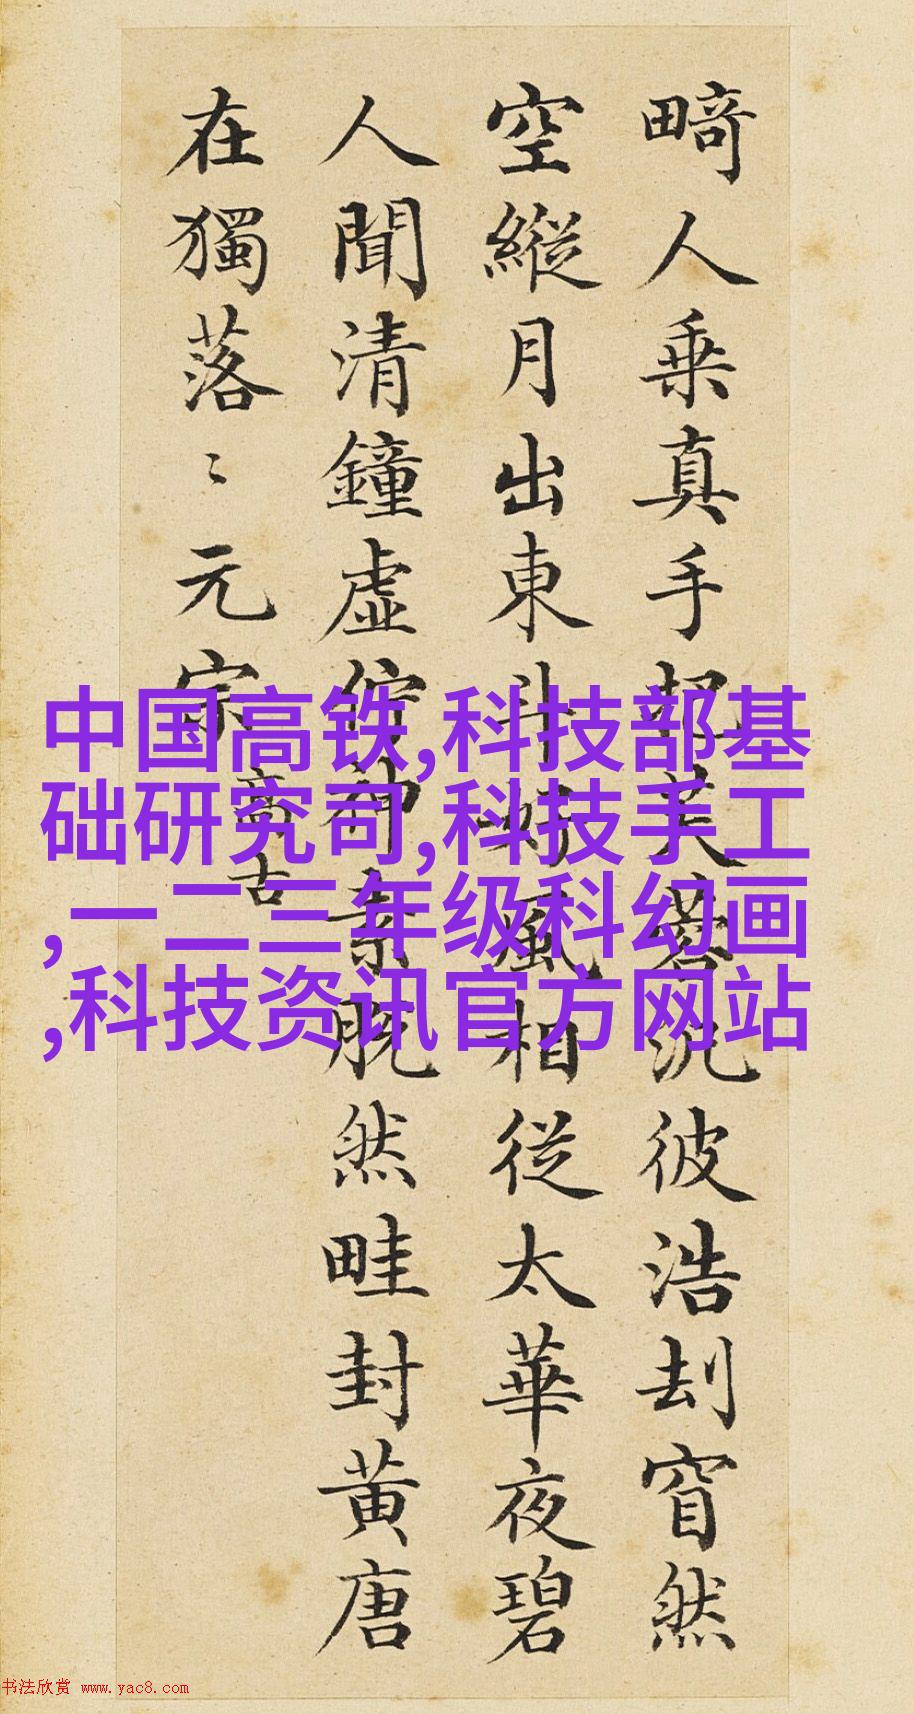 畸人乗真手芙蓉汎彼浩刦窅然
空縱月出東斗好風相從太華夜碧
人聞清鐘虚佇神素脱然畦封黄唐
在獨落〻元宗
高古
中国高铁,科技部基
础研究司,科技手工
,一二三年级科幻画
,科技资讯官方网站
书法欣赏 www.yac8.com